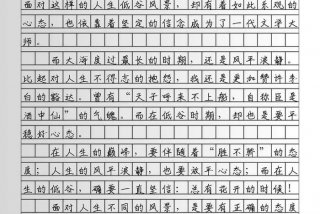 面对这样的人生低谷风景，却有着如此乐观的
心态，也依靠着坚定的信念成为了一代文学大
师。
而大海度过最长的时期，还是风平浪静。
比起对人生不得志的抱怨，我还是更加赞许李
白的豁达。曾有“天子呼来不上船，自称臣是
酒中仙”的气魄。而在低谷时期，却也是要平
稳好心态。
在人生的巅峰，要伴随着“胜不骄”的态
度；人生的风平浪静，也要放平心态；而在人
生的低谷，确要一直坚信：总有花开的时候！
面对人生不同的风景，是要有正确的态度